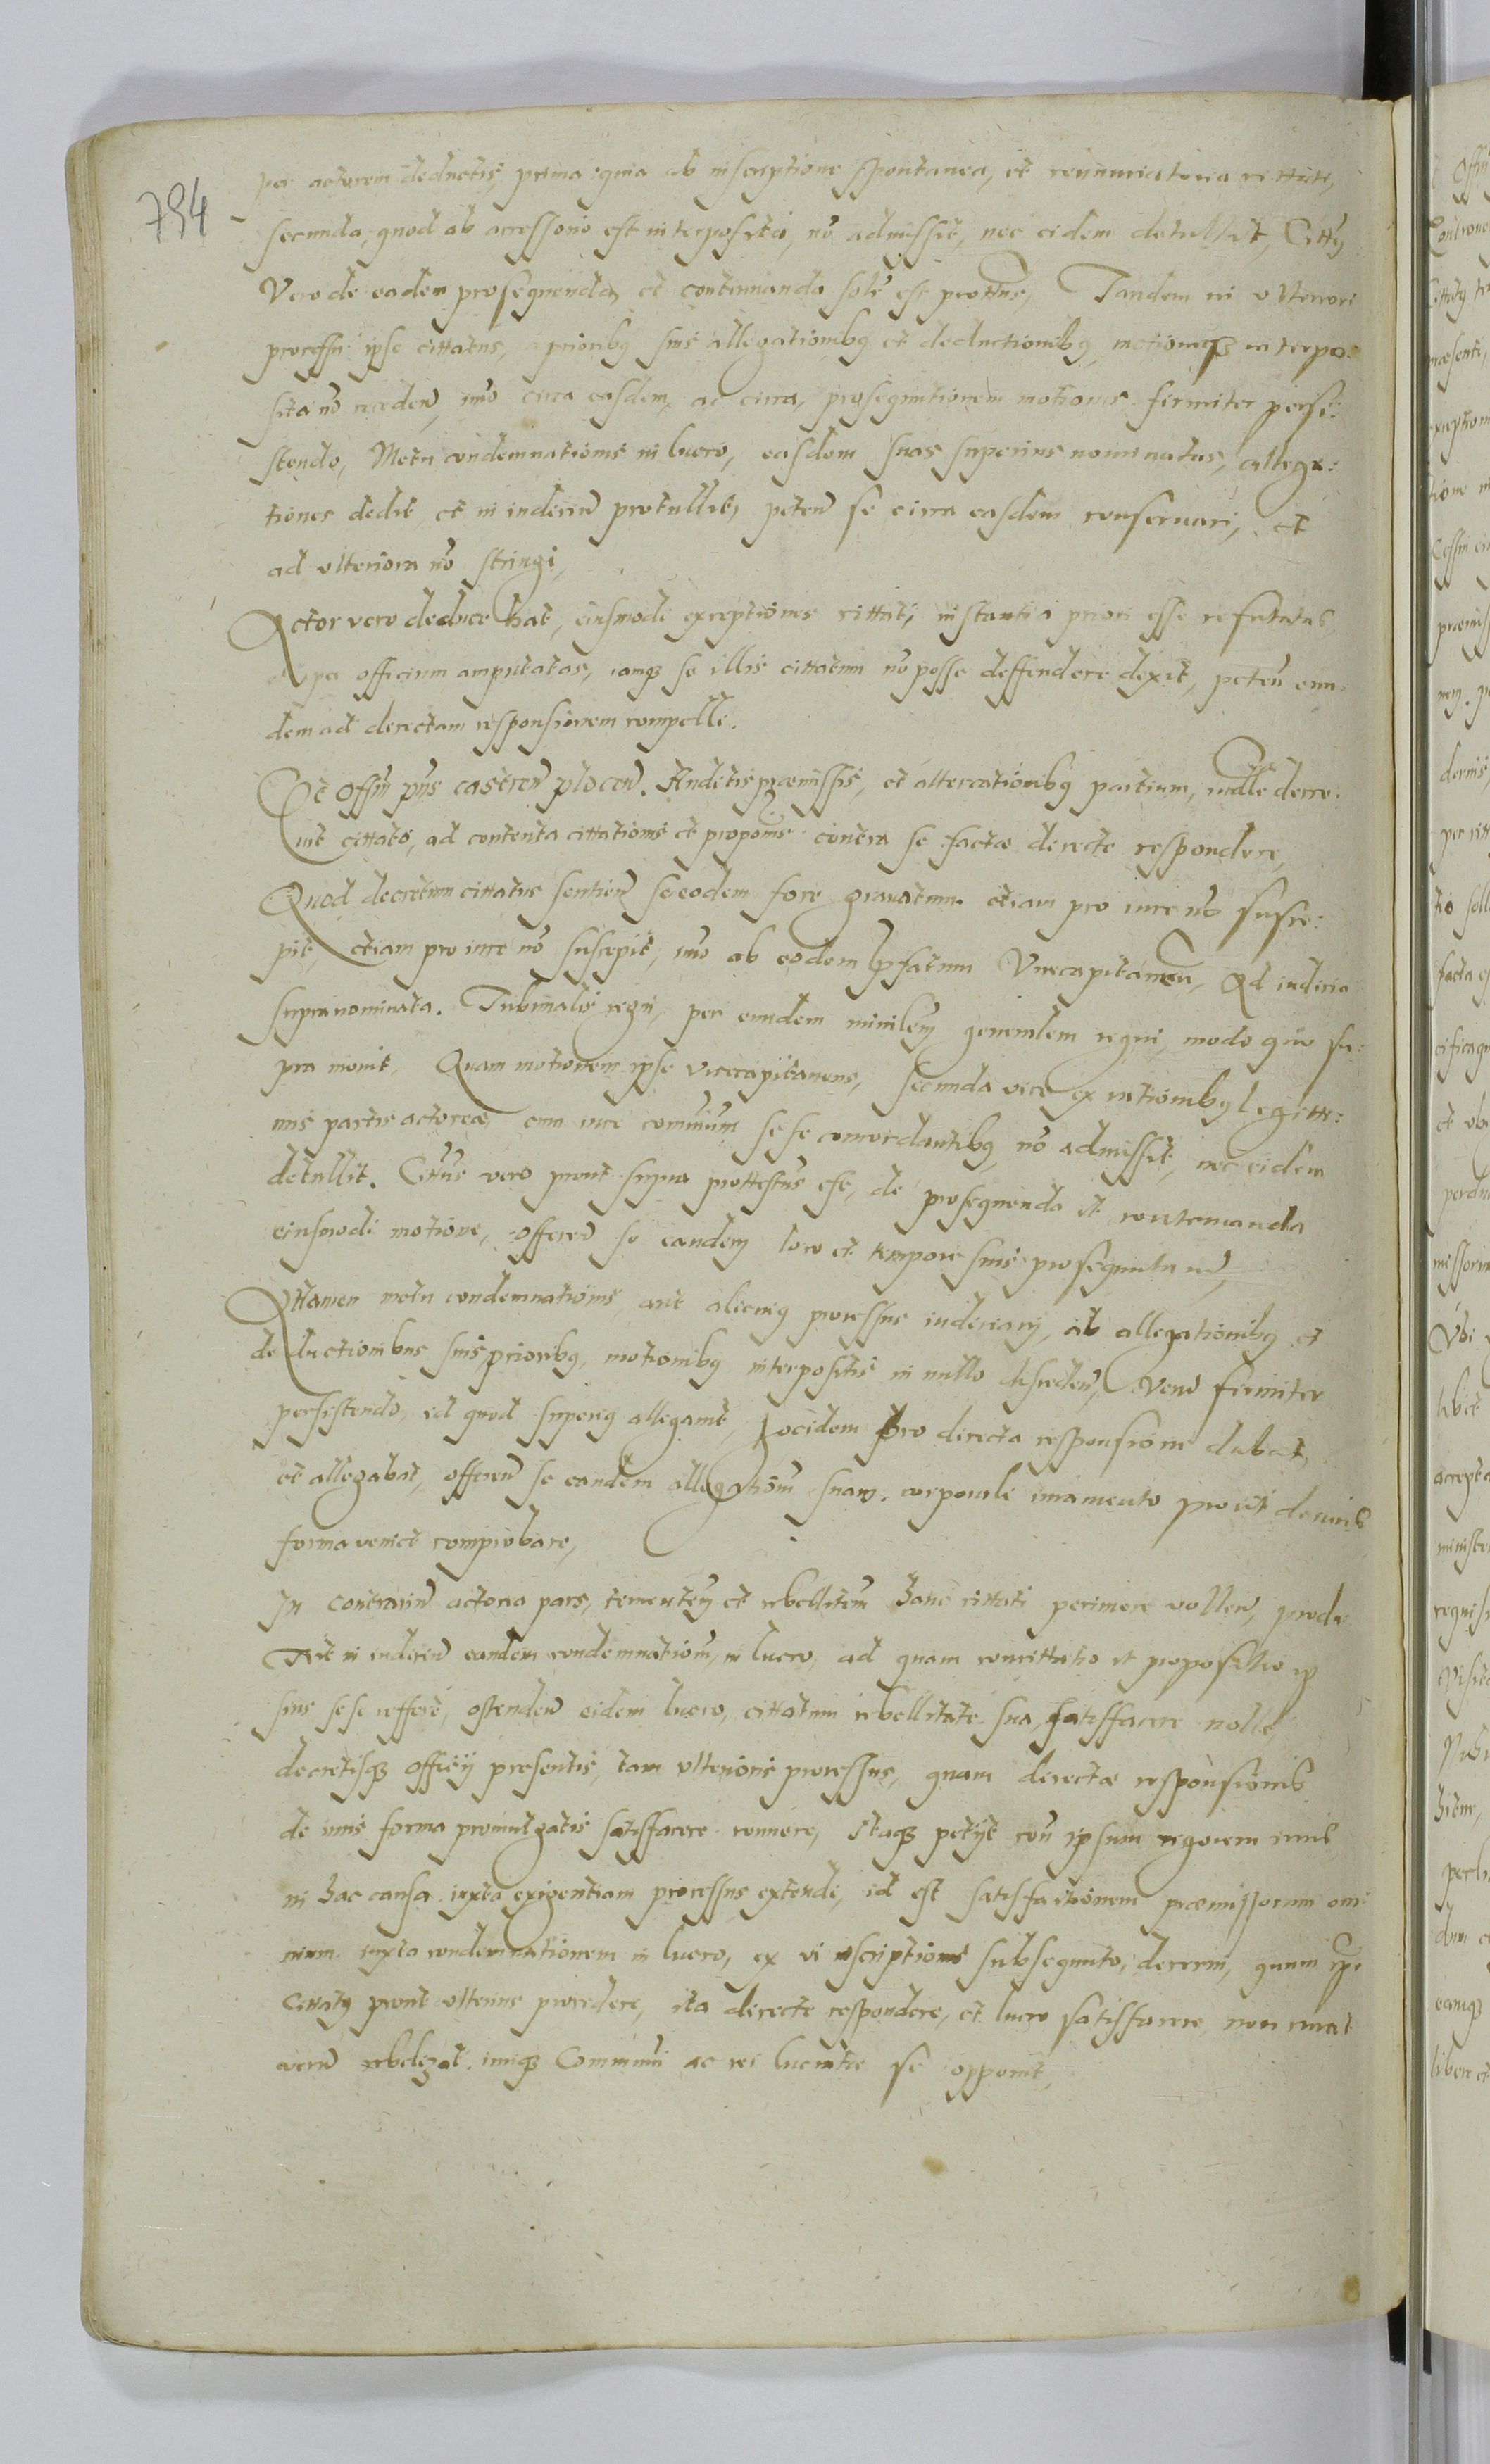 794
per actorem deductis, prima quia ab inscriptione spontanea, et renunciatoria cittati,
secunda, quod ab accessorio est interposita, nō admissit, nec eidem detullit, Citt9
Vero de eadem prosequenda et continuanda solē est prottūs, Tandem in ulteriori
processu ipse cittatus, a priorib9 suis allegationib9 et deductionib9, motioneq3 interpo:
sita nō recedeñ, imo circa easdem, ac circa, prosequutionem motionis firmiter persi:
stendo, Metu condemnationis in lucro, easdem suas superius nominatas, allega:
tiones dedit et in indiciū protullit, peteñ se circa easdem conservari, et
ad ulteriora nō stringi,
Actor vero deducebat, eiusmodi exceptiones cittati, instantia priori esse refutatas,
et per officium amputatas, iamq3 se illis cittatum nō posse deffendere dixit, peteñ eun
dem ad directam responsionem compelli.
Et Offm p̄ns castreñ plocen. Auditis praemissis, et altercationib9 partium, iudlr decre:
vit cittato, ad contenta cittationis et propōnis contra se factae directe respondere,
Quod decretum cittatus sentieñ se eodem fore gravatum etiam pro iure nō susce:
pit, etiam pro iure nō suscepit, imo ab eodem p̄fatum Vicecapitaneū, Ad iudicia
supranominata. Tribunalis regni, per eundem ministēm generalem regni, modo quo su:
pra movit, Quam motionem ipse vicecapitaneus, secunda vice ex rationib9 legitti:
mis partis actoreae, cum iure commūni sese concordantib9, nō admissit, nec eidem
detullit. Cittūs vero prout supra prottestūs est, de prosequenda et continuanda
eiusmodi motione, offereñ se eandem loco et tempore suis prosequuturū,
Attamen metu condemnationis, aut alicui9 processus iudiciarij, ab allegationib9 et
deductionibus suis priorib9, motionib9 interpositis in nullo discedeñ, Vero firmiter
persistendo, id quod superi9 allegavit, ibidem pro directa responsione dabat,
et allegabat, offereñ se eandem allegationē suam corporale iuramento prout de iuris
forma veniet comprobare,
In contrariū actorea pars, temeritatē et rebellitatē hanc cittati perimere volleñ, produ
xit in indiciū eandem condemnationē, in lucro, ad quam concittatio et propositio ip
sius sese reffert, ostendeñ eidem lucro, cittatum rebellitate sua satisfacere nolle,
decretisq3 officij presentis, tam ulterioris processus, quam directae responsionis
de iuris forma promulgatis satisfacere rennere, Itaq3 petijt coñ ipsum rigorem iuris
in hac causa iuxta exigentiam processus extendi, id est satisfactionem praemissorum om:
nium iuxta condemnationem in lucro, ex vi inscriptionis subsequuto, decerni, quum ip̄e
Cittat9 prout ulterius procedere, ita directe respondere, et lucro satisfacere non curat
verū rebelizat, iuriq3 Communi ac rei iudicatae se opponit,